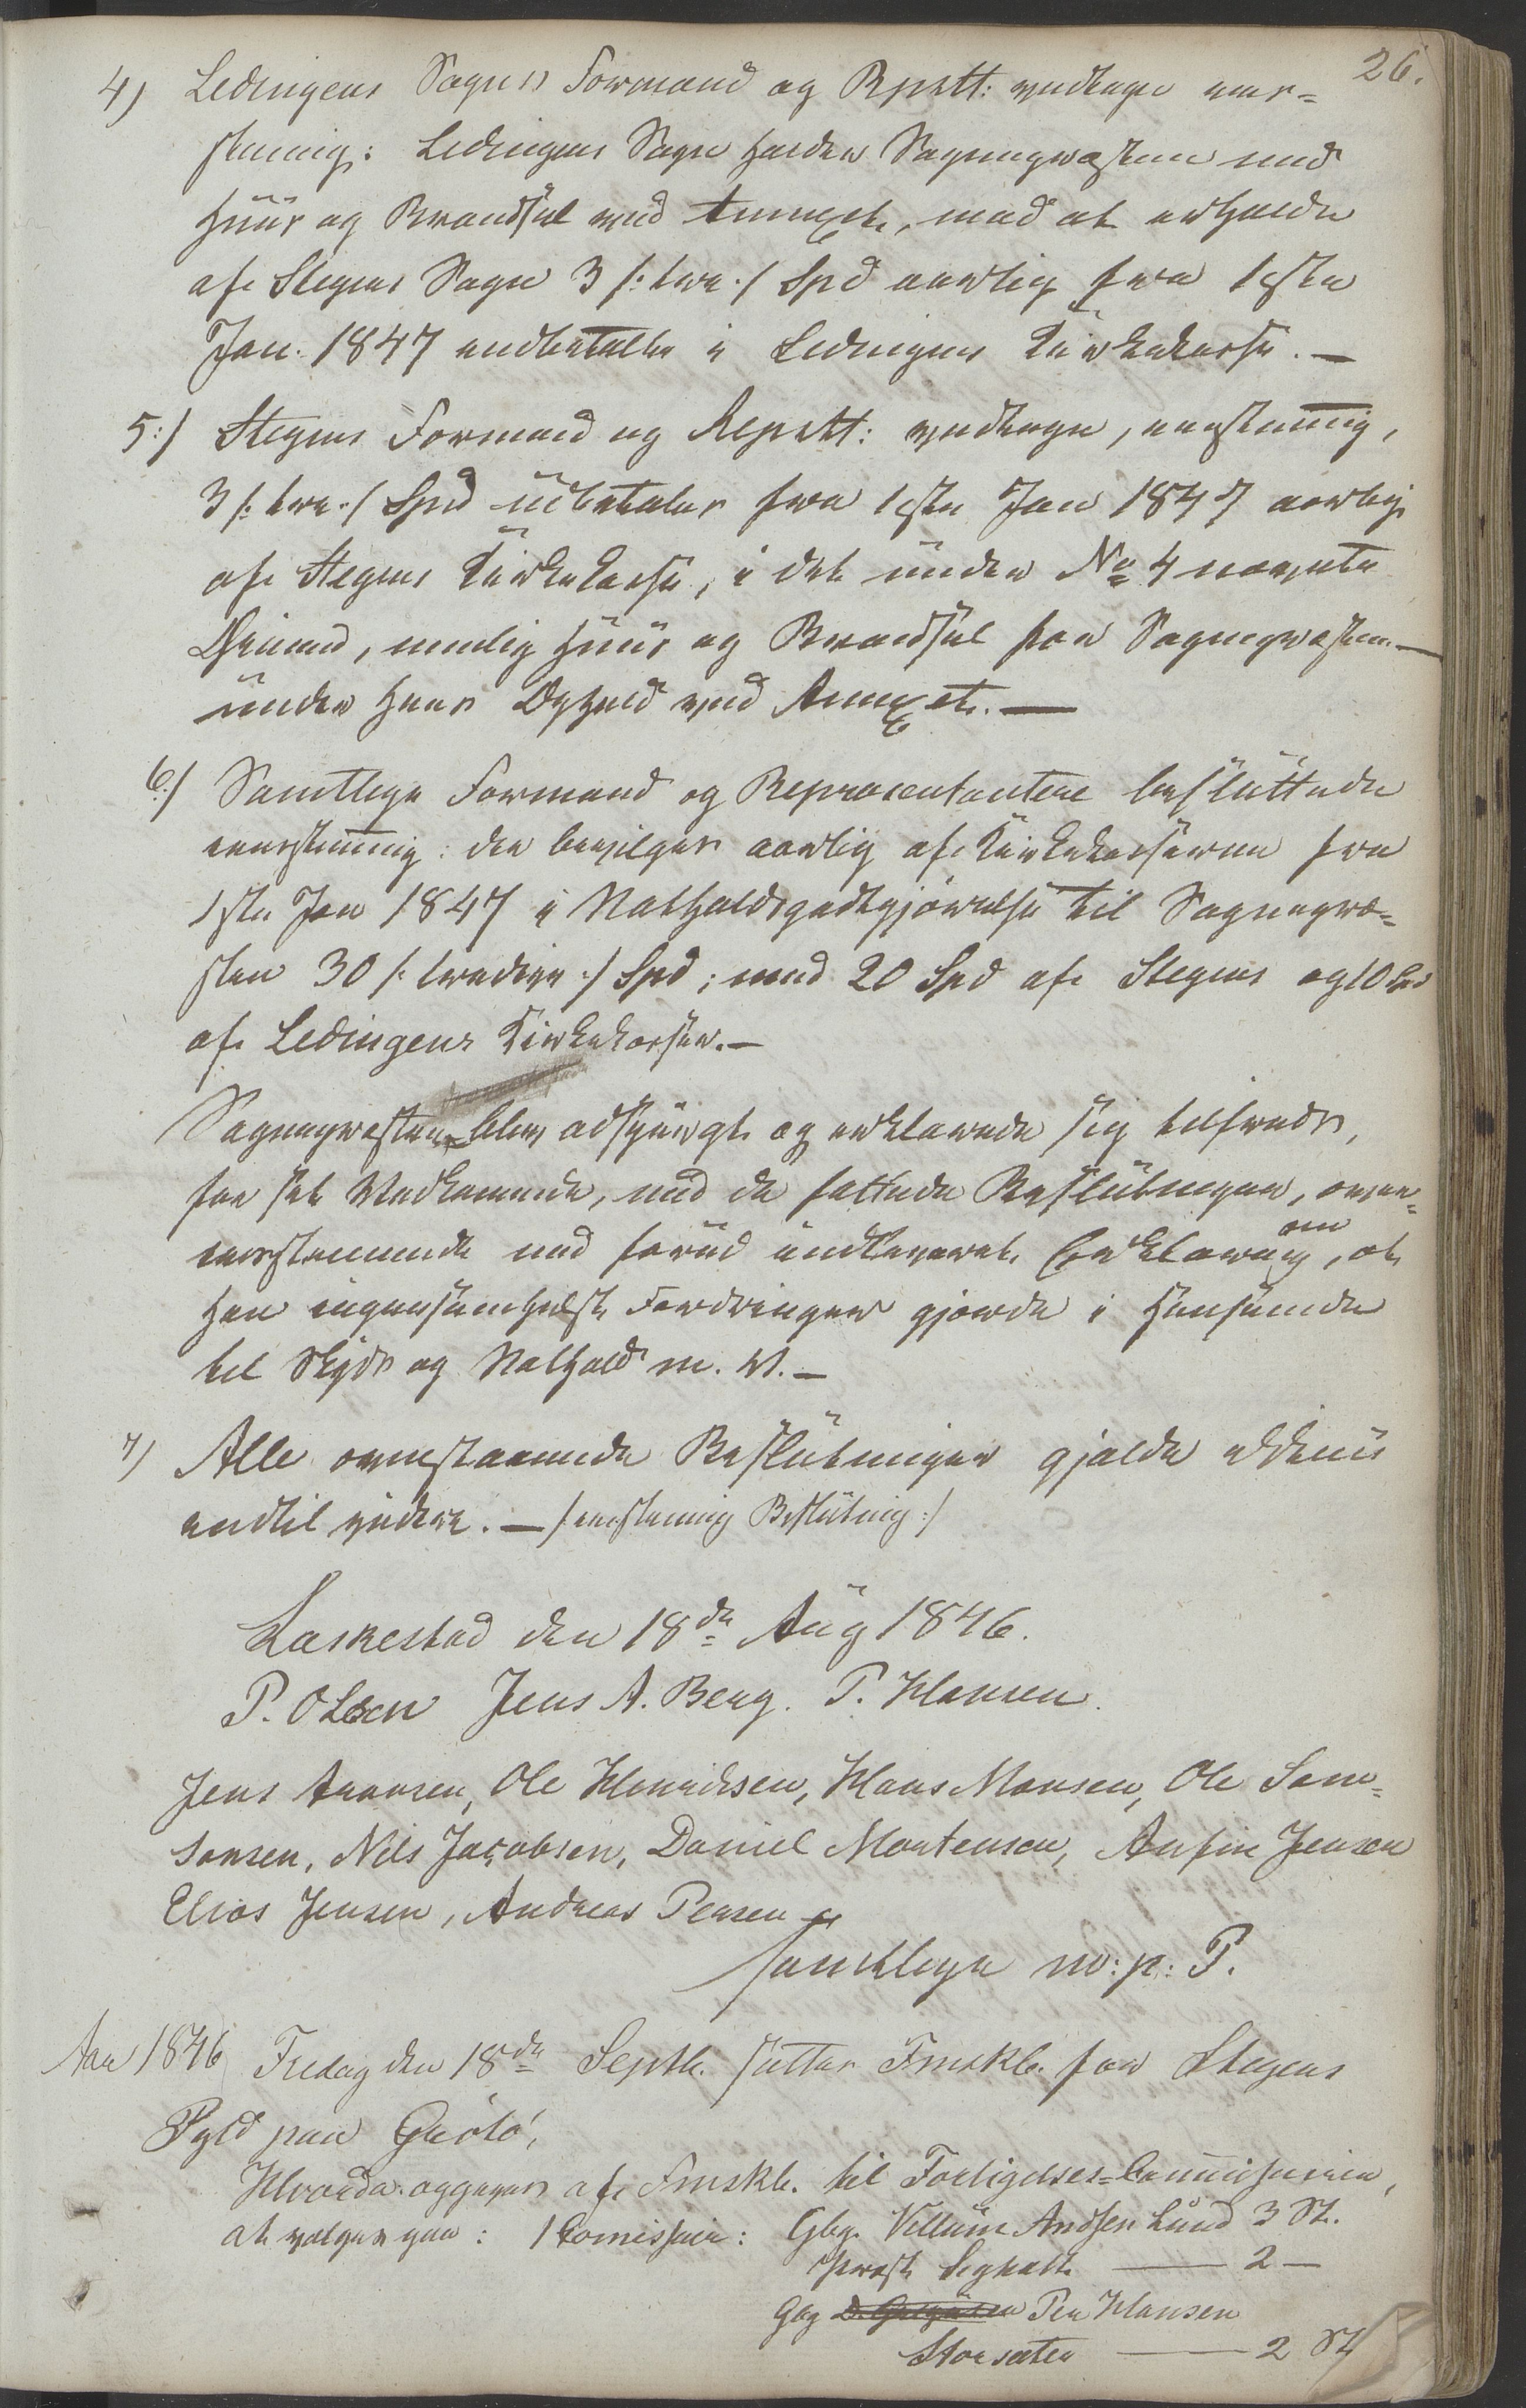 26.
4) Ledingens Sogns Formænd og Reprtt: vedtage eens=
stemmig: Ledingens Sogn holder Sognepræsten med
Huus og Brændsel ved Annexet, mod at erholde
af Stegens Sogn 3 /: tre :/ Spd aarlig fra 1ste
Jan. 1847 indbetalte i Ledingens Kirkekasse. —
5:/ Stegens Formænd og Reprtt: vedtage, eenstemmig,
3 /: tre :/ Spd udbetales fra 1ste Jan 1847 aarlig
af Stegens Kirkekasse, i det under No 4 nævnte
Øiemed, nemlig Huus og Brændsel for Sognepræsten —
under hans Ophold ved Annexet. —
6:/ Samtlige Formænd og Repræsentantere besluttede
eenstemmig: der bevilges aarlig af Kirkekasserne fra
1ste Jan 1847 i Natholdsgodtgjørelse til Sognepræ=
sten 30 /: tredive :/ Spd; med 20 Spd af Stegens og 10 Spd
af Ledingens Kirkekasser. —
Sognepræsten blev adspurgt og erklærede sig tilfreds,
for sit Vedkommende, med de fattede Beslutninger, overeens=
stemmende med forud indleveret Erklæring om, at
han ingensomhelst Fordringer gjorde i Henseende
til Skyds og Nathold m. V. —
7) Alle ovenstaaende Beslutninger gjælde
indtil videre. — /: eenstemmig Beslutning :/
Laskestad den 18de Aug 1846.
P. Olsen Jens A. Berg. P. Hansen.
Jens Aronsen, Ole Henrichsen, Hans Monsen, Ole Sam=
sonsen, Nils Jacobsen, Daniel Mortensen, Anfin Jensen
Elias Jensen, Andreas Pensen
samtlige m: p: P.
Aar 1846 Fredag den 18de Septb. sattes Fmskb. for Stegens
Pgld paa Grøtø,
Hvorda opgaves af Fmskb. til Forligelses=Commissairer,
at vælges paa: 1 Comissair: Gbg. Villum Andsen Lund 3 St.
Provst Sigholt — 2 —
Gbg Peu Hansen
Storsæter — 2 St